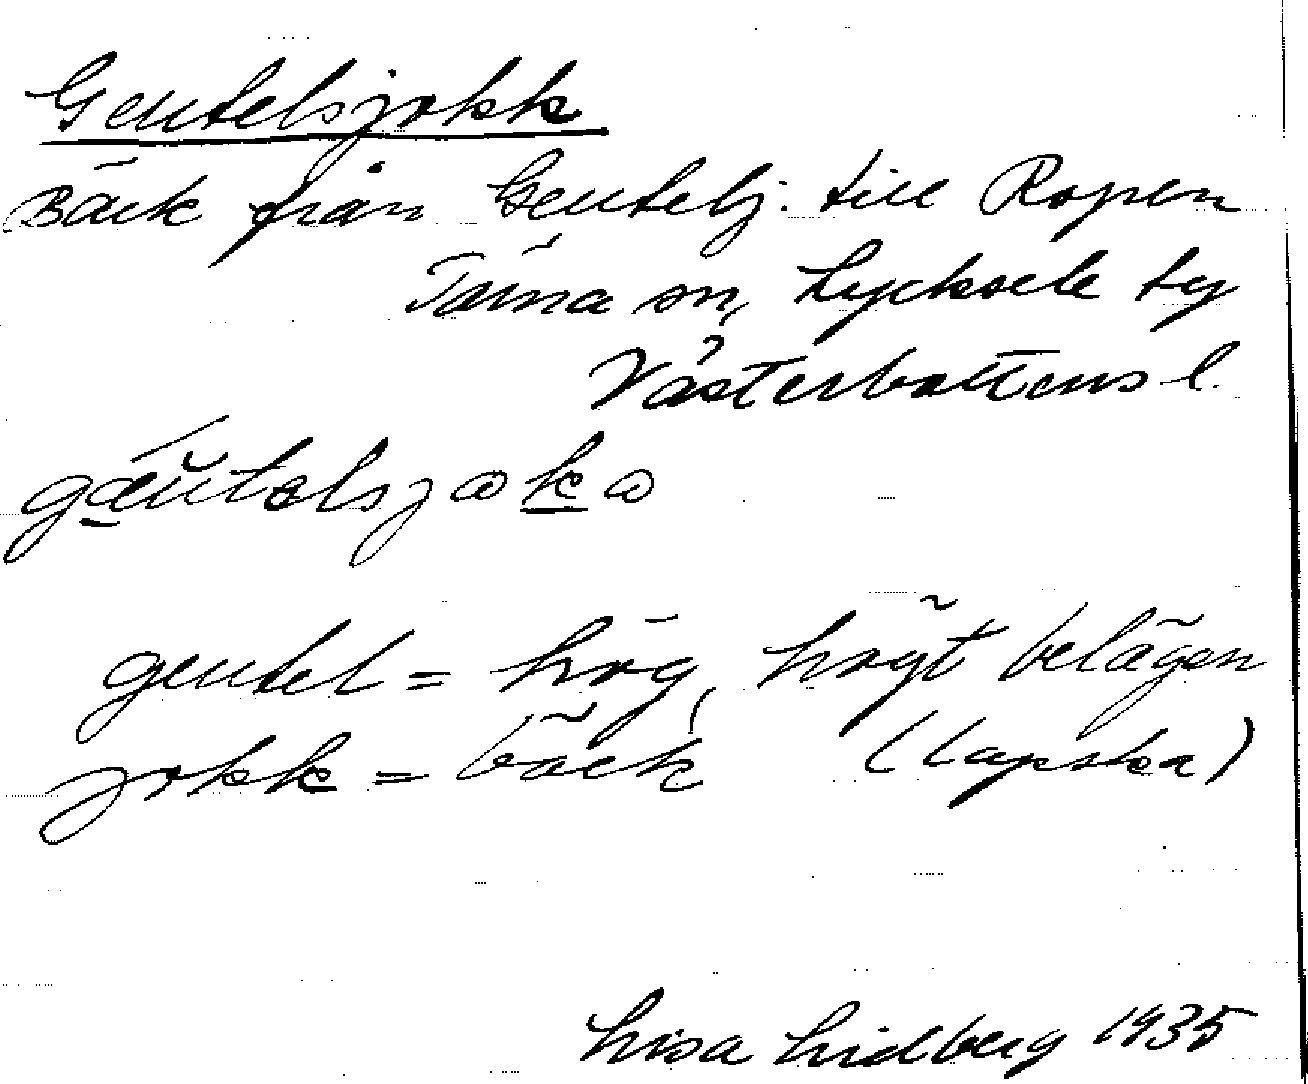 Geutelsjokk
Bäck från Geutelj. till Ropen
Tärna sn, Lycksele ty
Västerbottens l.
geutel = hög, högt belägen
jokk = bäck (lapska)
Lisa Lidberg 1935